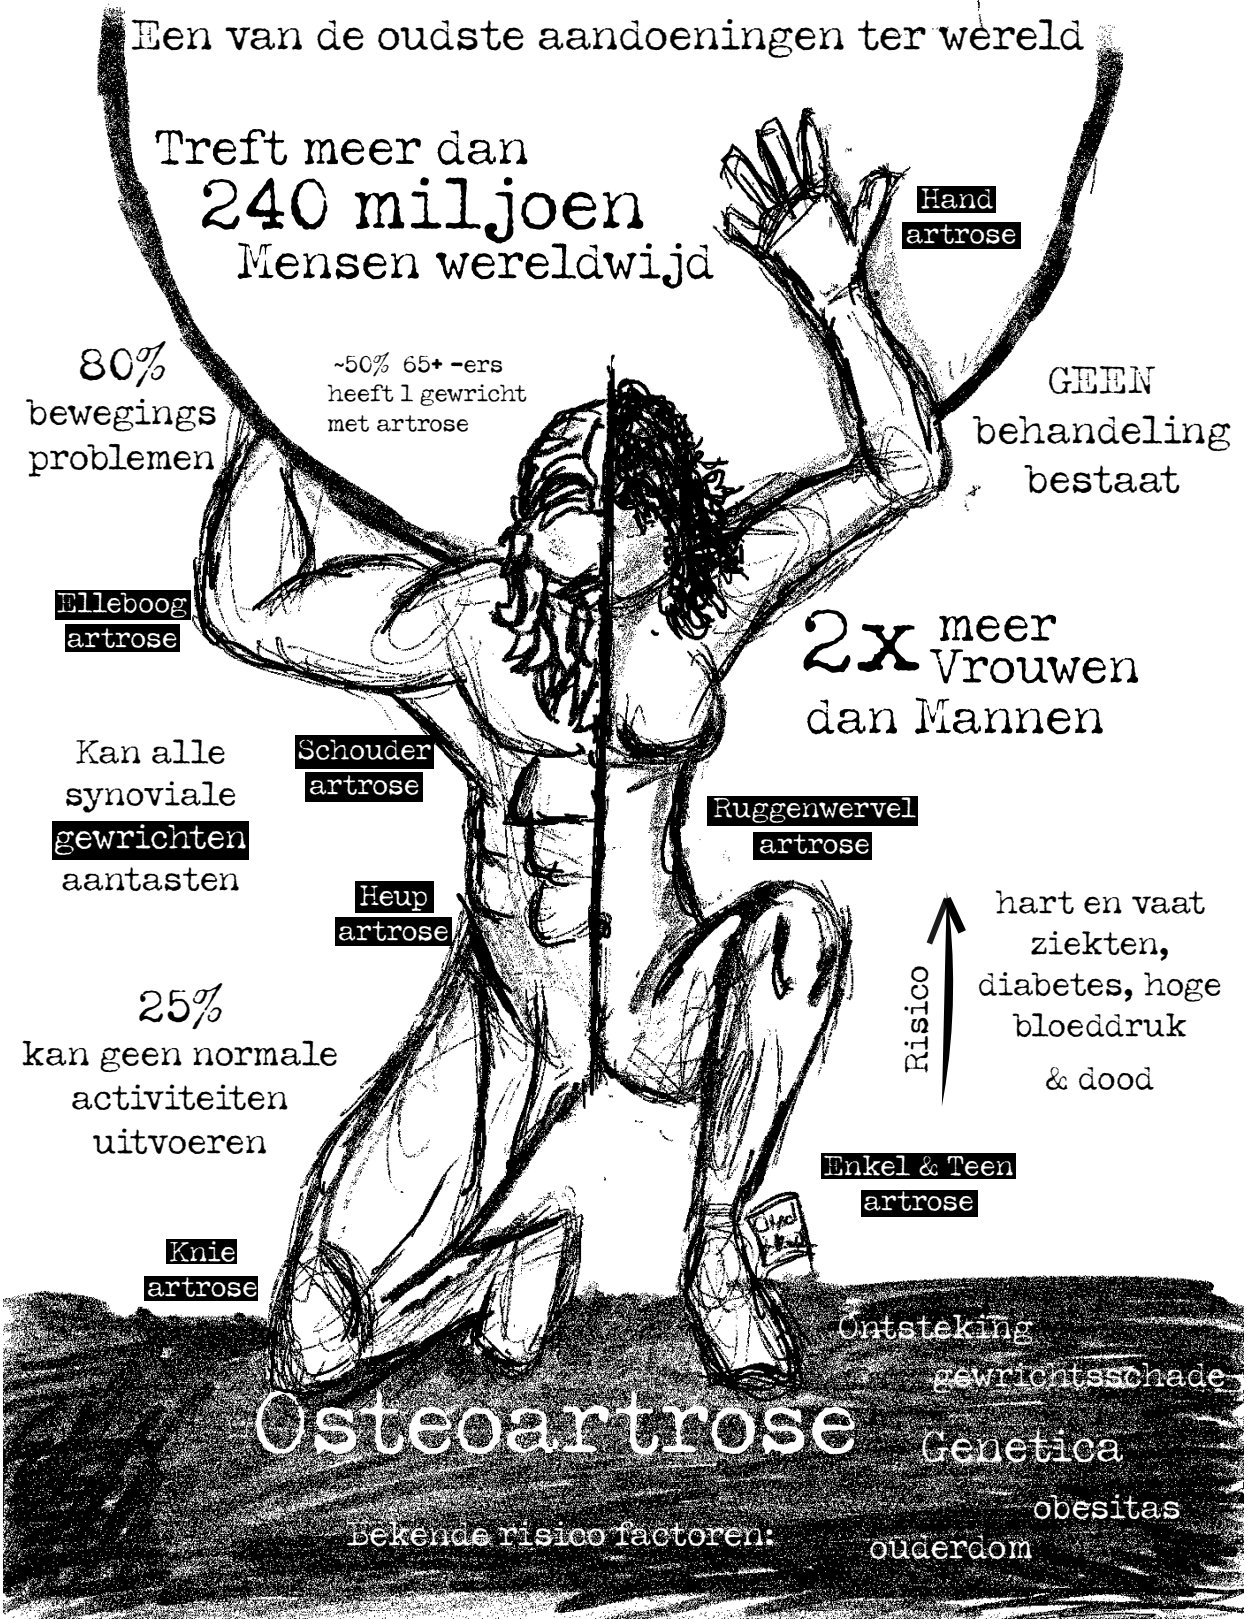 Een van de oudste aandoeningen ter wereld
Treft meer dan
240 miljoen
Mensen wereldwijd
Hand
artrose
80%
bewegings
problemen
~50% 65+ -ers
heeft 1 gewricht
met artrose
GEEN
behandeling
bestaat
Elleboog
artrose
2x meer
Vrouwen
dan Mannen
Kan alle
synoviale
gewrichten
aantasten
Schouder
artrose
Ruggenwervel
artrose
Heup
artrose
hart en vaat
ziekten,
diabetes, hoge
bloeddruk
& dood
Risico
25%
kan geen normale
activiteiten
uitvoeren
Enkel & Teen
artrose
Knie
artrose
Osteoartrose
Bekende risico factoren:
Ontsteking
gewrichtsschade
Genetica
obesitas
ouderdom